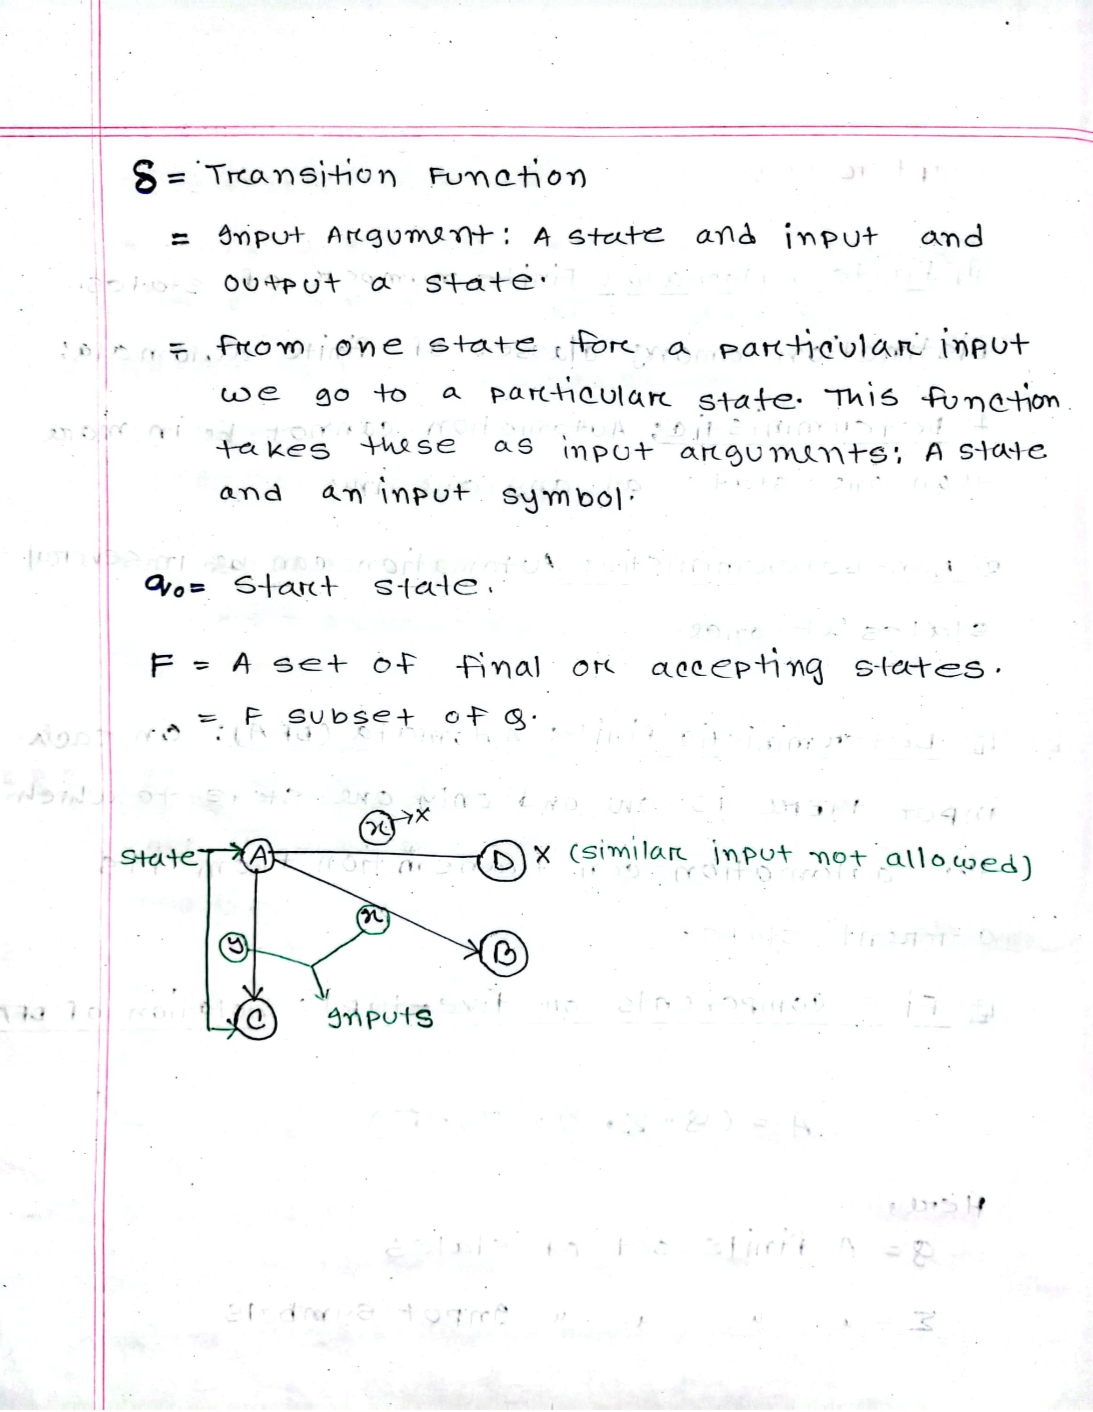 δ = Transition Function
= Input Argument: A state and input and
output a state.
= from one state for a particular input
we go to a particular state. This function
takes these as input arguments: A state
and an input symbol.
q₀ = Start state.
F = A set of final or accepting states.
= F subset of Q.
x → X
State A D X (similar input not allowed)
x
y B
C Inputs